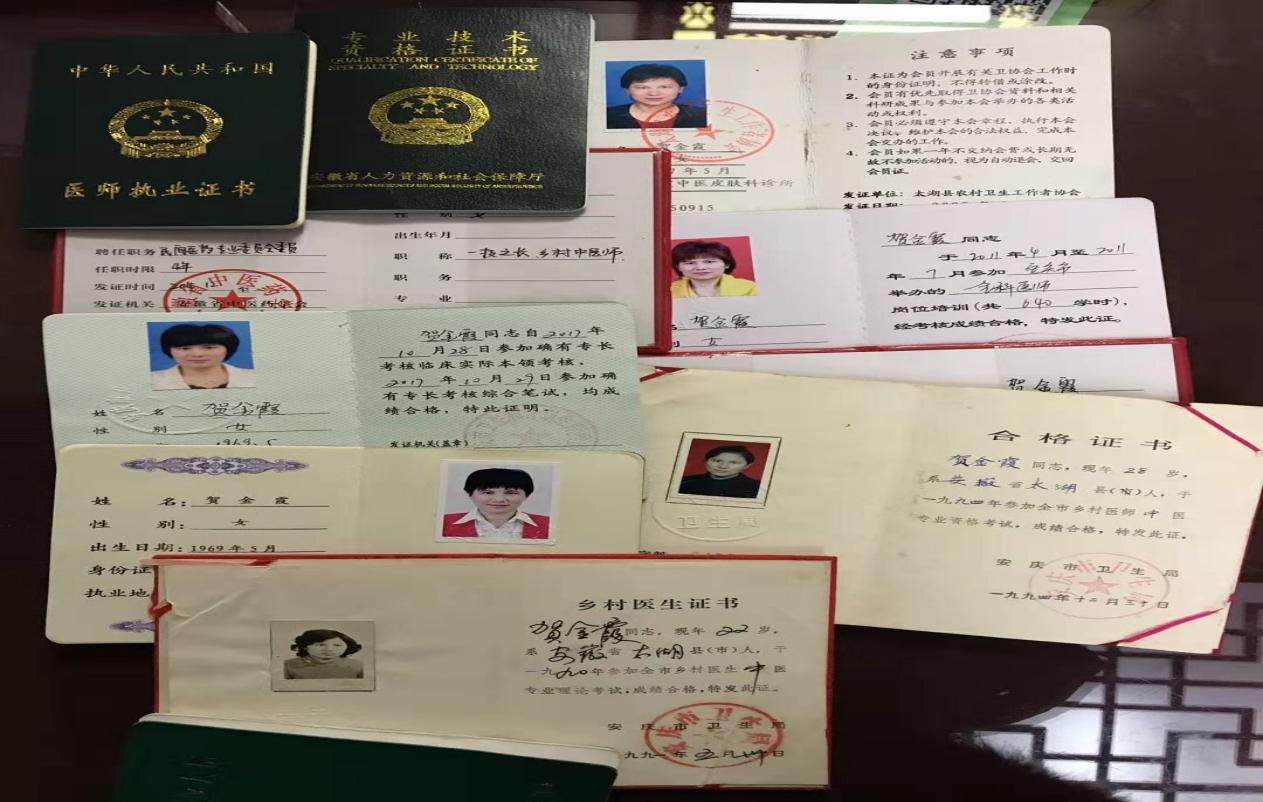 中华人民共和国
医师执业证书
专业技术
资格证书
QUALIFICATION CERTIFICATE OF
SPECIALTY AND TECHNOLOGY
安徽省人力资源和社会保障厅
贺金霞
女
7年5月
中医皮肤科诊所
50915
注意事项
1. 本证为会员开展有关卫协会工作时
的身份证明,不得转借或涂改。
2. 会员有优先取得卫协会资料和相关
科研成果与参加本会举办的各类活
动或权利。
3. 会员必须遵守本会章程,执行本会
决议,维护本会的合法权益,完成本
会交办的工作。
4. 会员如果一年不交纳会费或长期无
故不参加活动的,视为自动退会,交回
会员证。
发证单位:太湖县农村卫生工作者协会
发证日期:
聘任职务 民间医药专业委员会委员
任职时限 4年
发证时间
发证机关 安徽省中医药学会
性别 女
出生年月
职称 一技之长 乡村中医师
职务
专业
贺金霞
女
贺金霞 同志
于 2011 年 4 月至 2011
年 7 月参加 安庆市
举办的 全科医师
岗位培训(共 640 学时),
经考核成绩合格,特发此证。
贺金霞
姓名 贺金霞
性别 女
1969.5
贺金霞同志自 2017 年
10 月 28 日参加确有专长
考核临床实际本领考核,
2017 年 10 月 29 日参加确
有专长考核综合笔试,均成
绩合格,特此证明。
发证机关(盖章)
姓名:贺金霞
性别:女
出生日期:1969年5月
身份证
执业地
卫生局
合格证书
贺金霞 同志,现年 28 岁,
系 安徽 省 太湖 县(市)人,于
一九九四年参加全市乡村医师 中 医
专业资格考试,成绩合格,特发此证。
安庆市卫生局
一九九四年十二月三十日
乡村医生证书
贺金霞 同志,现年 22 岁,
系 安徽 省 太湖 县(市)人,于
一九九0年参加全市乡村医生 中 医
专业理论考试,成绩合格,特发此证。
安庆市卫生局